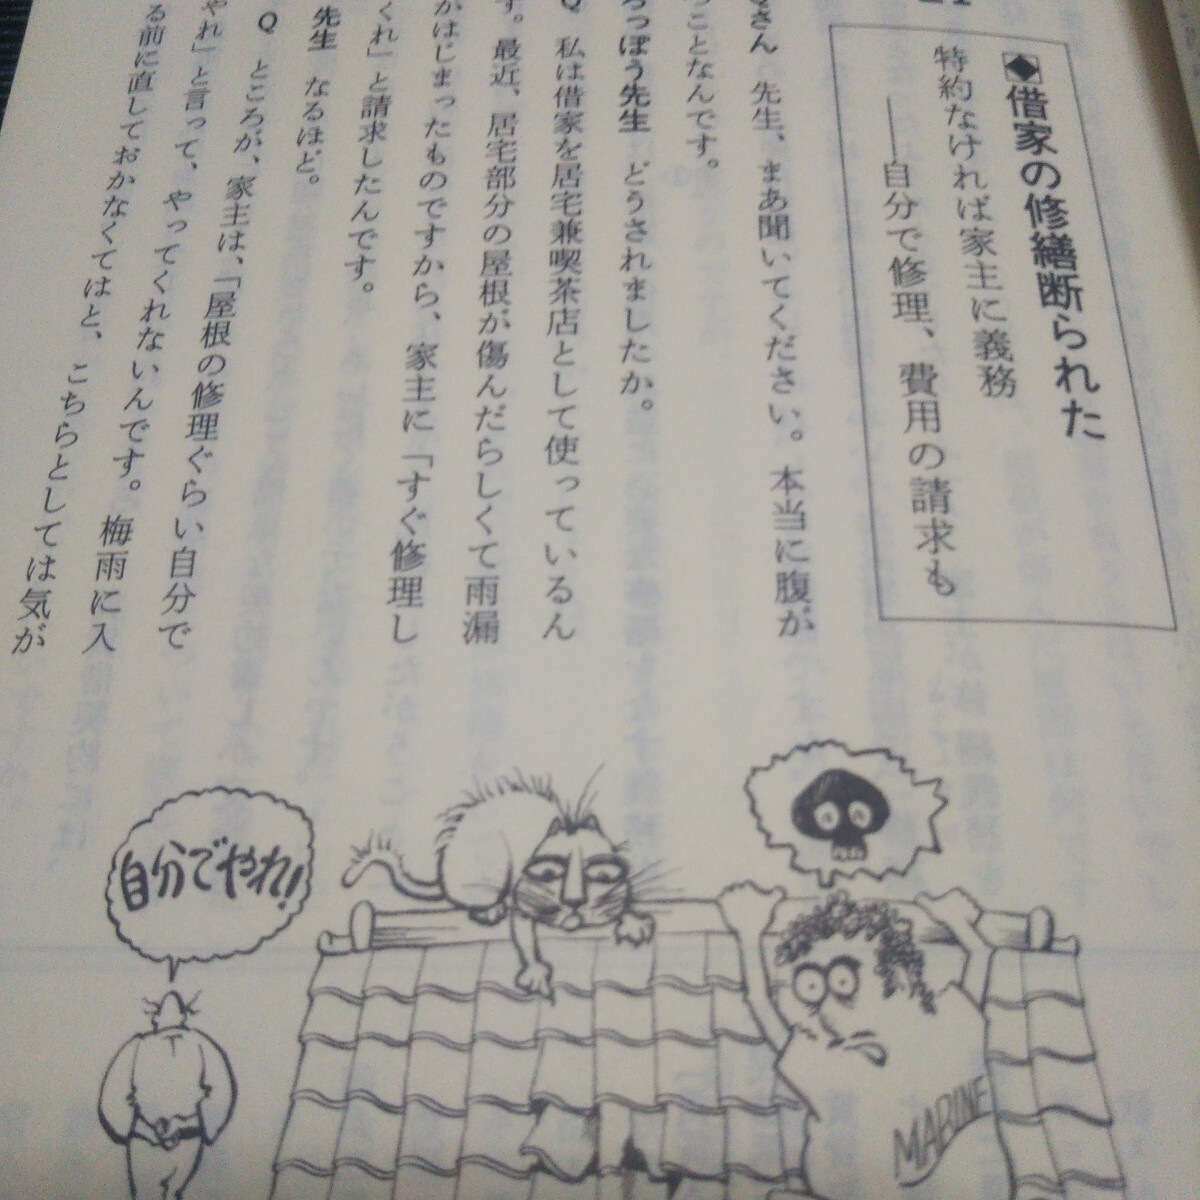 ◆借家の修繕断られた
特約なければ家主に義務
――自分で修理、費用の請求も
Qさん 先生、まあ聞いてください。本当に腹が
ことなんです。
ろっぽう先生 どうされましたか。
Q 私は借家を居宅兼喫茶店として使っているん
す。最近、居宅部分の屋根が傷んだらしくて雨漏
がはじまったものですから、家主に「すぐ修理し
くれ」と請求したんです。
先生 なるほど。
Q ところが、家主は、「屋根の修理ぐらい自分で
やれ」と言って、やってくれないんです。梅雨に入
る前に直しておかなくてはと、こちらとしては気が
自分でやれ!
MARINE